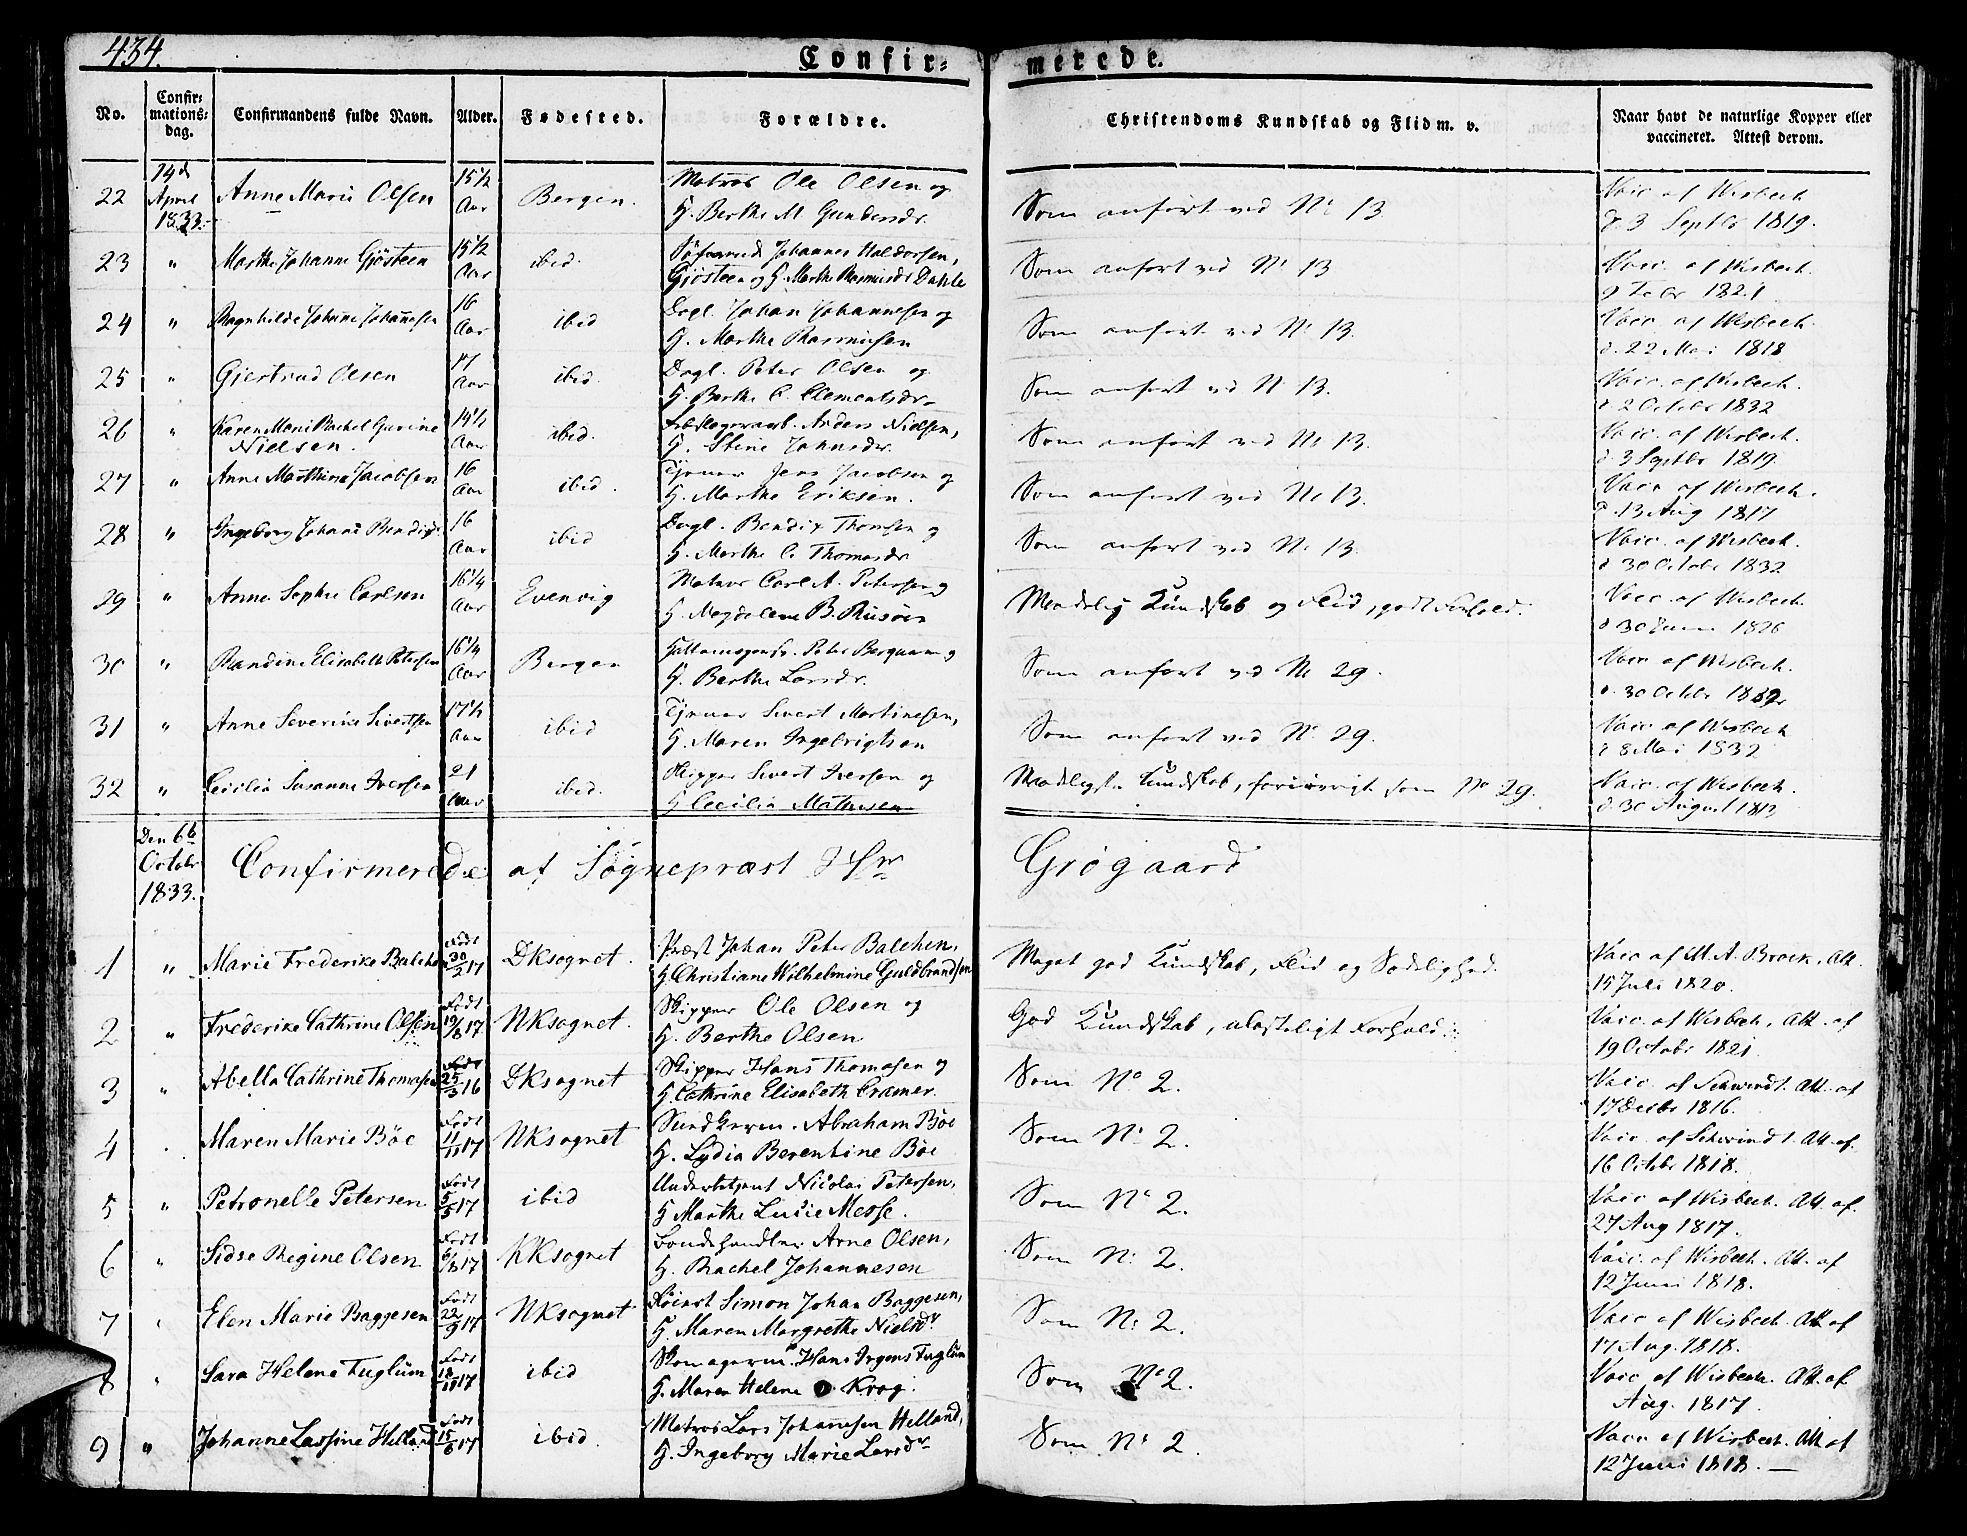 434.
Confirmerede.
No.
Confirmations-dag.
Confirmandens fulde Navn.
Alder.
Fødested.
Forældre.
Christendoms Kundskab og Flid m. v.
Naar havt de naturlige Kopper eller vaccineret. Attest derom.
22 14d April 1833. Anne Marie Olsen 15½ Aar Bergen. Matros Ole Olsen og
H. Berthe M. Gundersdr. Som anført ved No 13 Vacc af Wisbech
d. 3 Septbr 1819.
23 " Marthe Johanne Gjøsteen 15½ Aar ibid. Johannes Haldorsen,
Gjøsteen og H. Marthe Rasmusdr Dahle Som anført ved No 13 Vacc. af Wisbech.
9 Febr 1821
24 " Ragnhilde Johanne Johannesen 16 Aar ibid Dagl. Johan Johannesen og
H. Marthe Rasmusen Som anført ved No 13. Vacc. af Wisbech.
d. 22 Mai 1818
25 " Gjertrud Olsen 17 Aar ibid. Dagl. Peter Olsen og
H. Berthe C. Clementsdr. Som anført ved No 13. Vacc. af Wisbech.
d. 2 Octobr 1832
26 " Karen Marie Rachel Gurine
Nielsen. 14½ Aar ibid. Anders Nielsen,
H. Stine Johnsdr. Som anført ved No 13. Vacc. af Wisbech.
d. 3 Septbr 1819.
27 " Anne Marthine Jacobsen 16 Aar ibid. Tjener Jens Jacobsen og
H. Marthe Eriksen. Som anført ved No 13. Vacc af Wisbech.
d. 13 Aug 1817
28 " Ingeborg Johanne 16 Aar ibid Dagl. Bendix Thomsen og
H. Marthe C. Thomasdr Som anført ved No 13. Vacc. af Wisbech.
d. 30 Octobr 1832
29 " Anne Sophie Carlsen 16¼ Aar Evenvig Matros Carl A. Petersen og
H. Magdalene B. Maadelig Kundskab og Flid, godt Forhold. Vacc. af Wisbech.
d 30 1826
30 " Randine Elisabeth Petersen 16¼ Aar Bergen Peter
H. Berthe Larsdr. Som anført ved No 29. Vacc af Wisbech.
d. 30 Octbr 1832
31 " Anne Severine Sivertsen 17½ Aar ibid Tjener Sivert Martinesen,
H. Maren Ingebrigtsen Som anført ved No 29. Vacc. af Wisbech
d 8 Mai 1832
32 " Cecilia Susanne Iversen 21 Aar ibid. Skipper Sivert Iversen og
H Cecilia Mathisen Kundskab, forøvrigt som No 29. Vacc af Wisbech.
d. 30 August 1813
Den 6te October 1833. Confirmerede af Sognepræst Hr Grøgaard
1 " Marie Frederike Født 30/2 17 DKsognet. Præst Johan Peter Balchen,
H. Christiane Wilhelmine Guldbrandsen Meget god Kundskab, Flid og Sædelighed. Vacc af M. A. Brock, Att.
15 Juli 1820.
2 " Frederike Cathrine Olsen Født 17 NKsognet. Skipper Ole Olsen og
H. Berthe Olsen God Kundskab, ulasteligt Forhold. Vacc. af Wisbech, Att. af
19 Octobr 1821
3 " Abella Cathrine Thomasen Født 25/3 16 DKsognet Skipper Hans Thomasen og
H. Cathrine Elisabeth Cramer. Som No 2. Vacc. af Schwindt. Att. af
17 Decbr 1816.
4 " Maren Marie Bøe Født 11/11 17 NKsognet Abraham Bøe
H. Lydia Berentine Bøe Som No 2. Vacc. af Schwindt. Att. af
16 Octbr 1818.
5 " Petronelle Petersen Født 5/5 17 ibid Nicolai Petersen,
H Marthe Lucie Messe. Som No 2. Vacc af Wisbech. Att. af
27 Aug 1817.
6 " Sidse Regine Olsen Født 6/8 17 KKsognet Bondehandler Arne Olsen,
H. Rachel Johannesen Som No 2. Vacc. af Wisbech. Att. af
12 Juni 1818.
7 " Elen Marie Baggesen Født 22/9 17 NKsognet Simon Johan Baggesen,
H. Maren Margrethe Nielsdr. Som No 2. Vacc af Wisbech. Att af
17 Aug. 1818.
8 " Sara Helene Fuglum Født 17 ibid Skomagerm. Hans Irgens Fuglum
H. Maren Helene Krog. Som No 2. Vacc af Wisbech. Att. af
Aug. 1817.
9 " Johanne Lassine Helland Født 15/6 17 ibid. Matros Lars Johannesen Helland,
H. Ingeborg Marie Larsdr Som No 2. Vacc af Wisbech. Att af
12 Juni 1818.